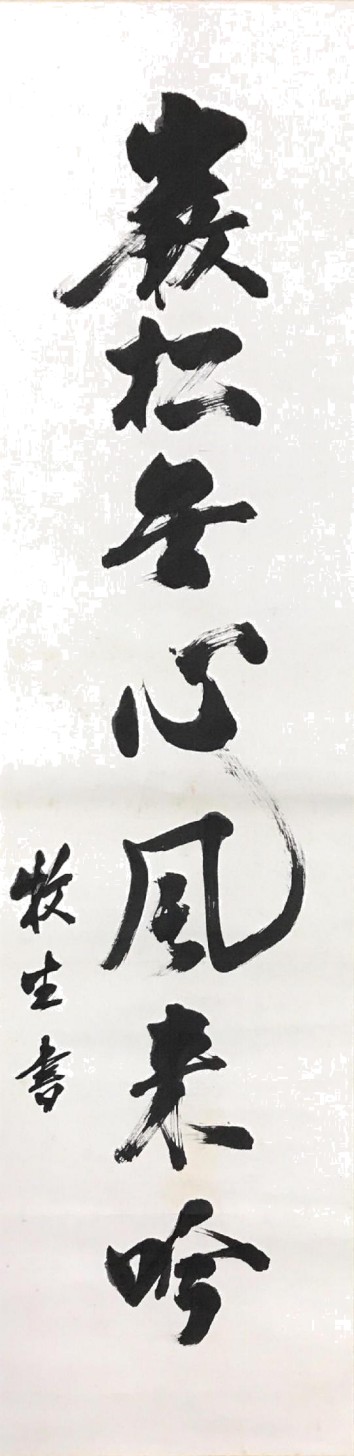 巌松無心風来吟
牧生書